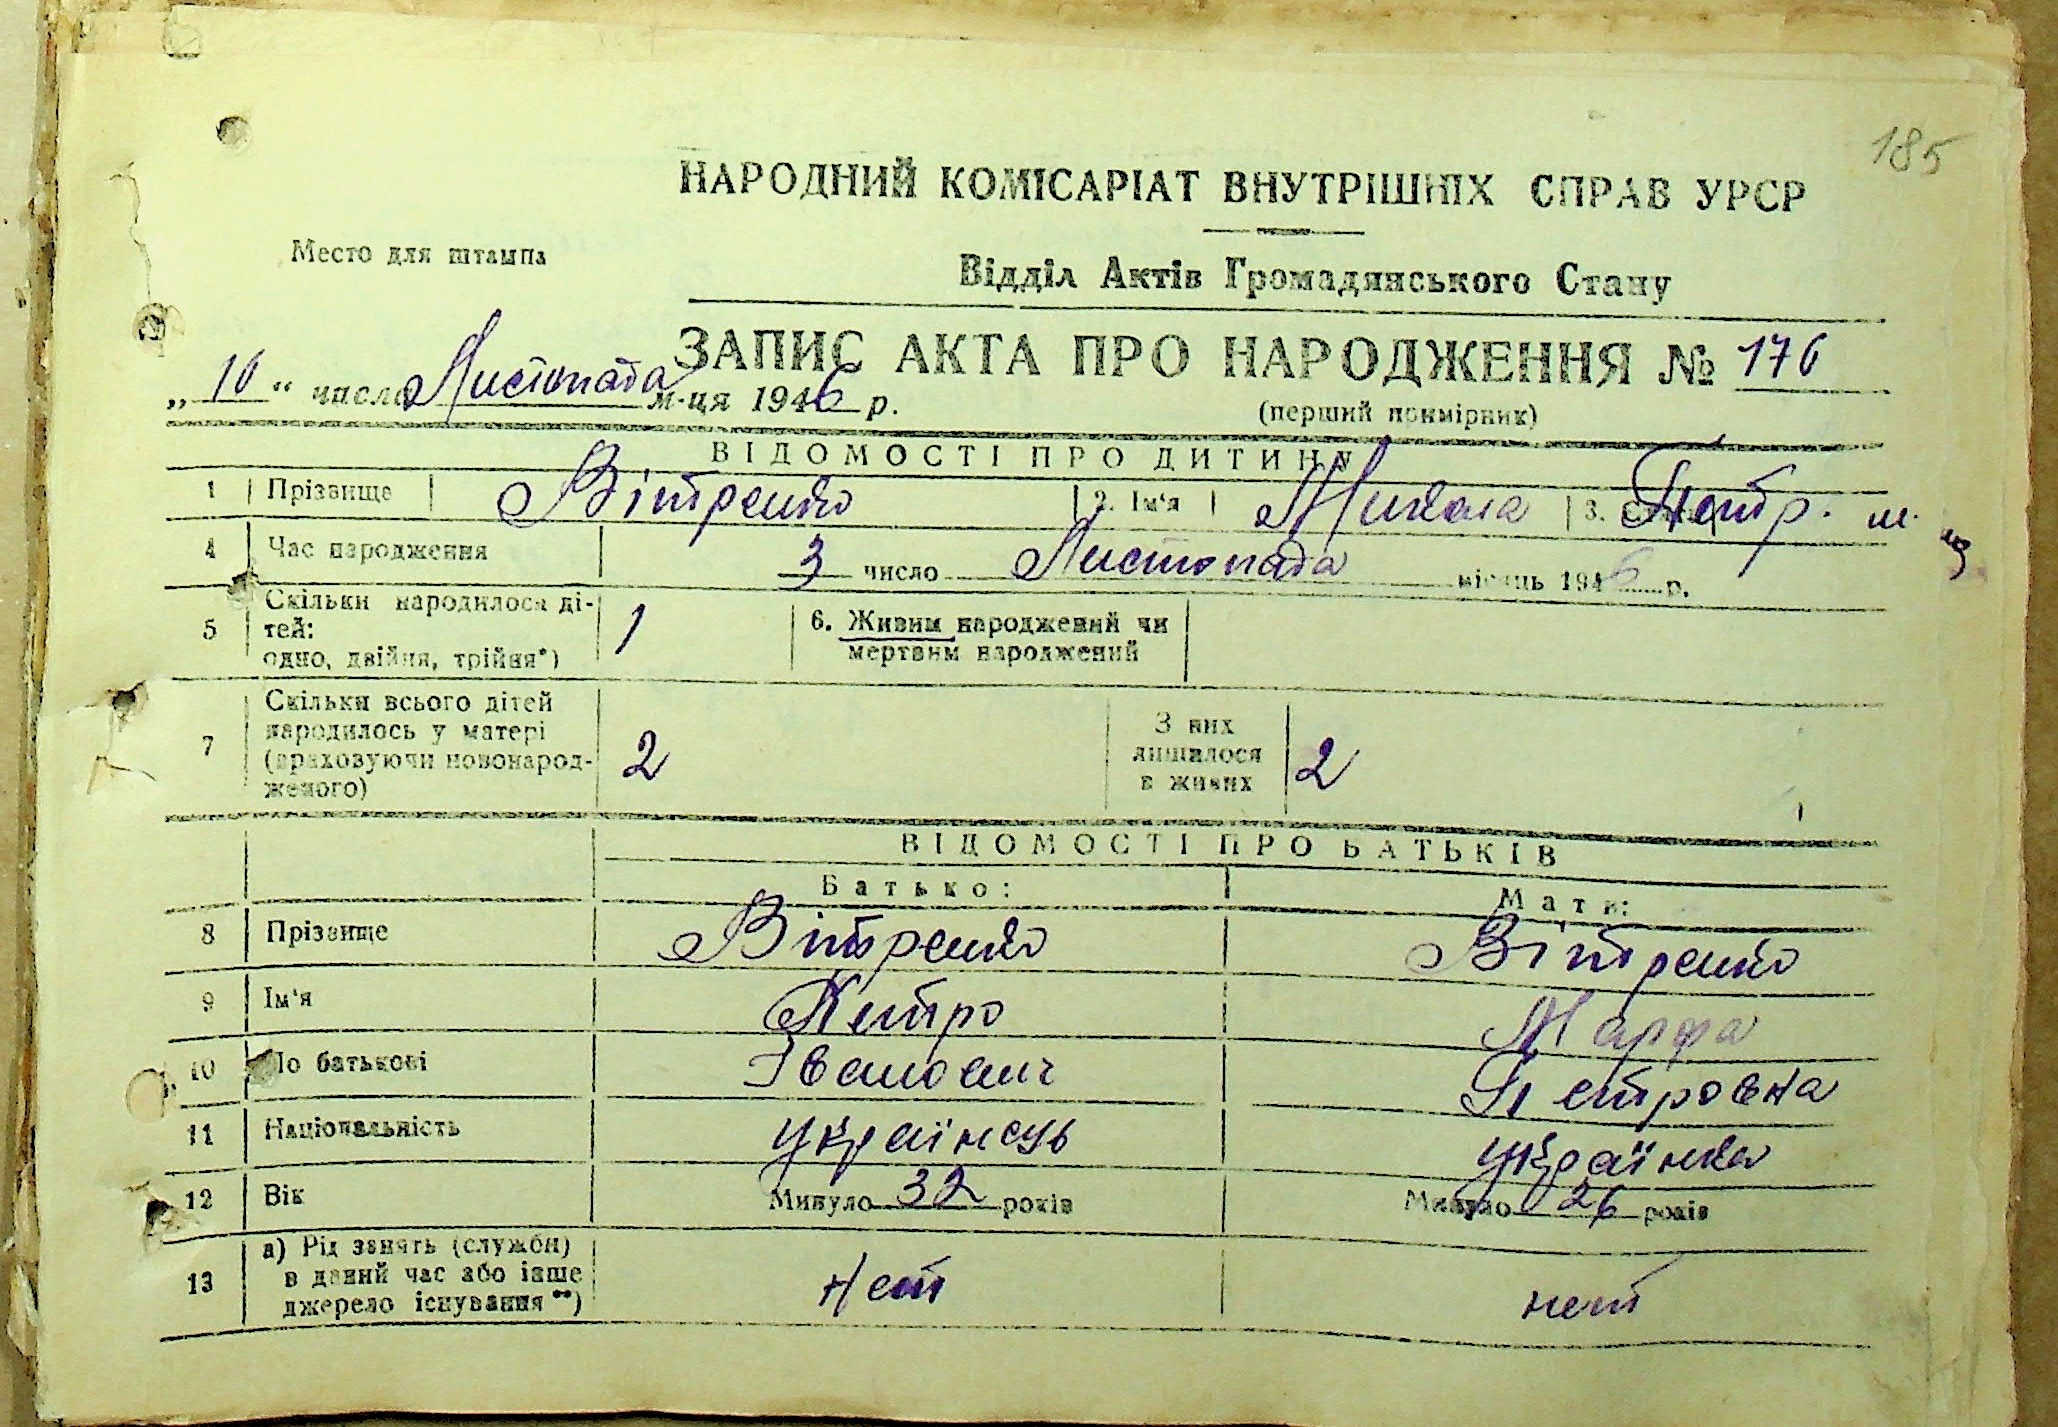 185
НАРОДНИЙ КОМІСАРІАТ ВНУТРІШНІХ СПРАВ УРСР
Место для штампа
Відділ Актів Громадянського Стану
ЗАПИС АКТА ПРО НАРОДЖЕННЯ № 176
„10“ числа Листопада м-ця 1946 р.
(перший примірник)
ВІДОМОСТІ ПРО ДИТИНУ
1 Прізвище Вітренко 2. Ім'я Микола 3. Стать Петр. ч.
4 Час народження 3 число Листопада місяць 1946 р.
5 Скільки народилося ді-
тей:
одно, двійня, трійня*) 1
6. Живим народжений чи
мертвим народжений
7 Скільки всього дітей
народилось у матері
(враховуючи новонарод-
женого) 2
З них
лишилося
в живих 2
ВІДОМОСТІ ПРО БАТЬКІВ
Батько: Мати:
8 Прізвище Вітренко Вітренко
9 Ім'я Петро Марфа
10 По батькові Іванович Петровна
11 Національність українець українка
12 Вік Минуло 32 років Минуло 26 років
13 а) Рід занять (служби)
в даний час або інше
джерело існування**) нет нет